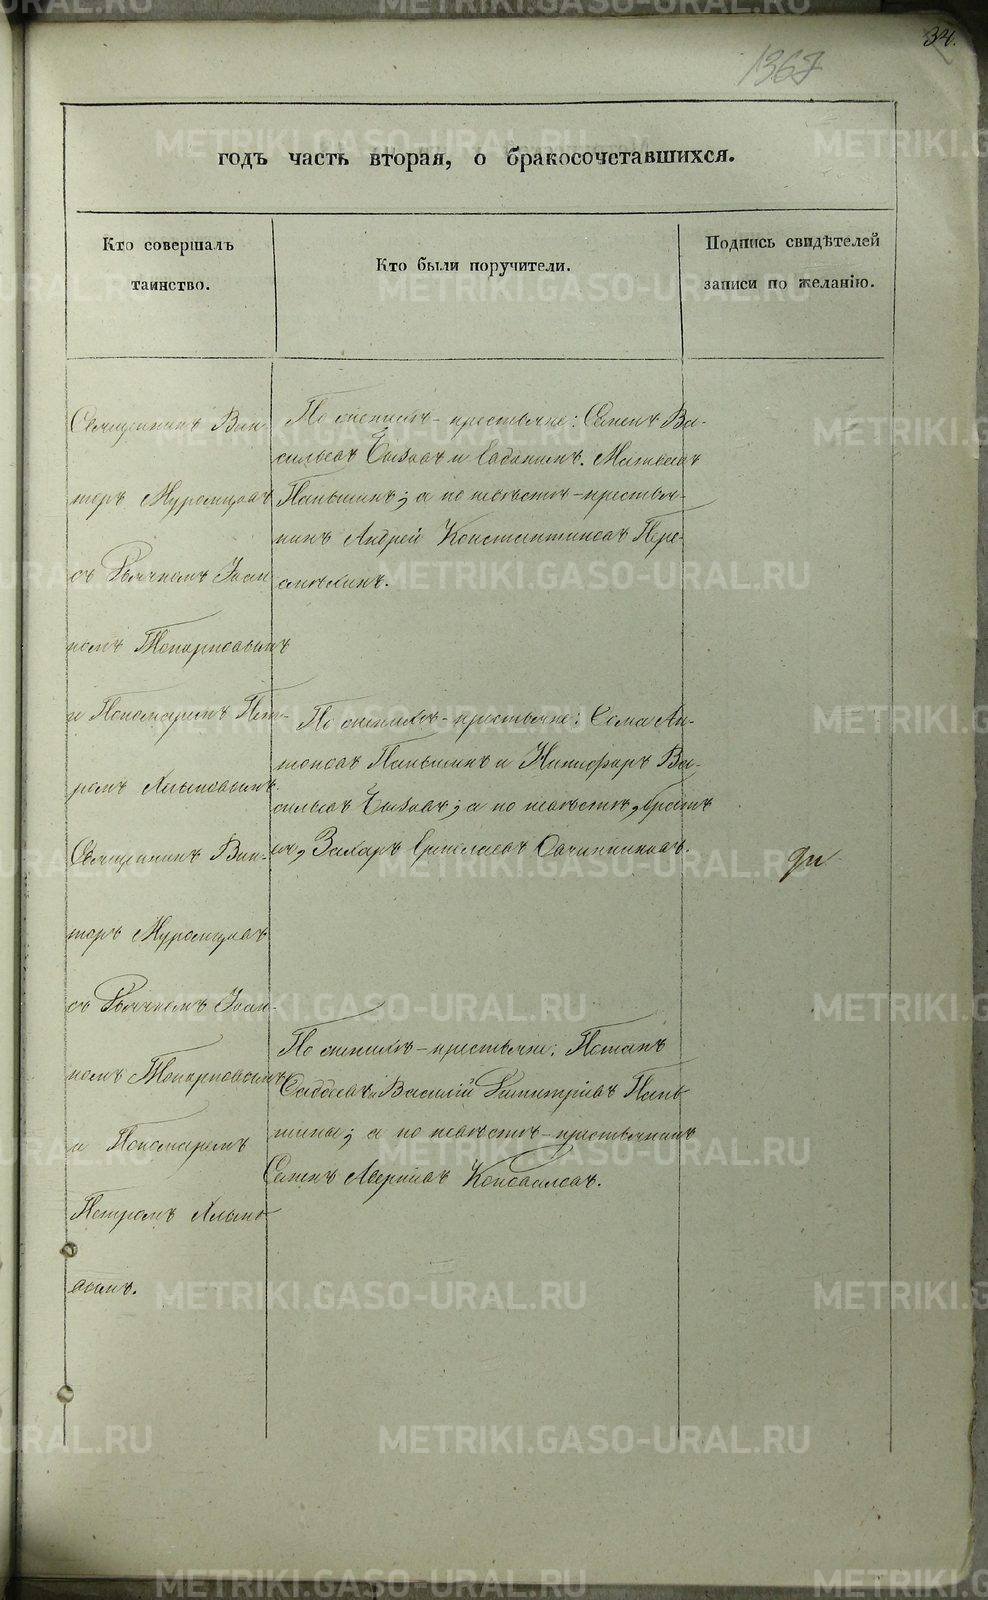 34.
1367
годъ часть вторая, о бракосочетавшихся.
Кто совершалъ
таинство.
Кто были поручители.
Подпись свидѣтелей
записи по желанію.
Священникъ Вик-
торъ Муромцовъ
съ Дьячкомъ Іоан
номъ Топорковымъ
и Пономаремъ Пет-
ромъ Хлыновымъ.
По женихѣ - крестьяне: Семенъ Ва-
сильевъ и Матвѣевъ
Паньшинъ; а по невѣстѣ - крестья-
нинъ Андрей Константиновъ Пере-
Священникъ Вик-
торъ Муромцовъ
съ Дьячкомъ Іоан-
номъ Топорковымъ
и Пономаремъ
Петромъ Хлыно-
вымъ.
По женихѣ - крестьяне: Ѳома Ан-
тоновъ Паньшинъ и Никифоръ Ва-
сильевъ; а по невѣстѣ, братъ
ея, Захаръ Овчинниковъ.
По женихѣ - крестьяне: Потапъ
Ѳаддеевъ и Василій Димитріевъ Пань-
шины; а по невѣстѣ - крестьянинъ
Семенъ Аверкіевъ Коноваловъ.
METRIKI.GASO-URAL.RU